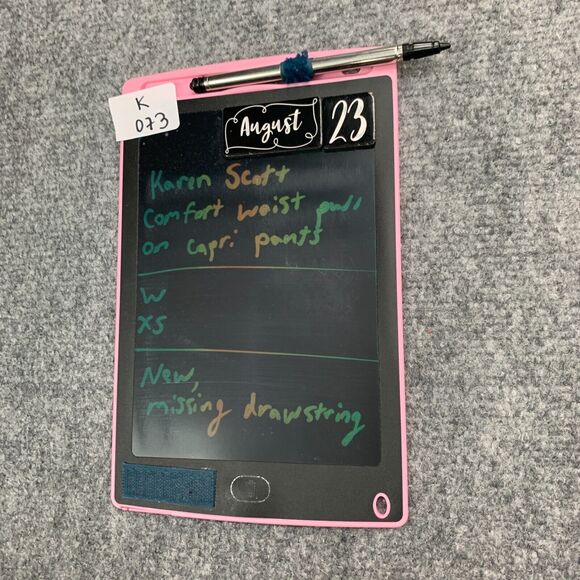 K
073
August 23
Karen Scott
Comfort waist pull
on capri pants
W
XS
New,
missing drawstring